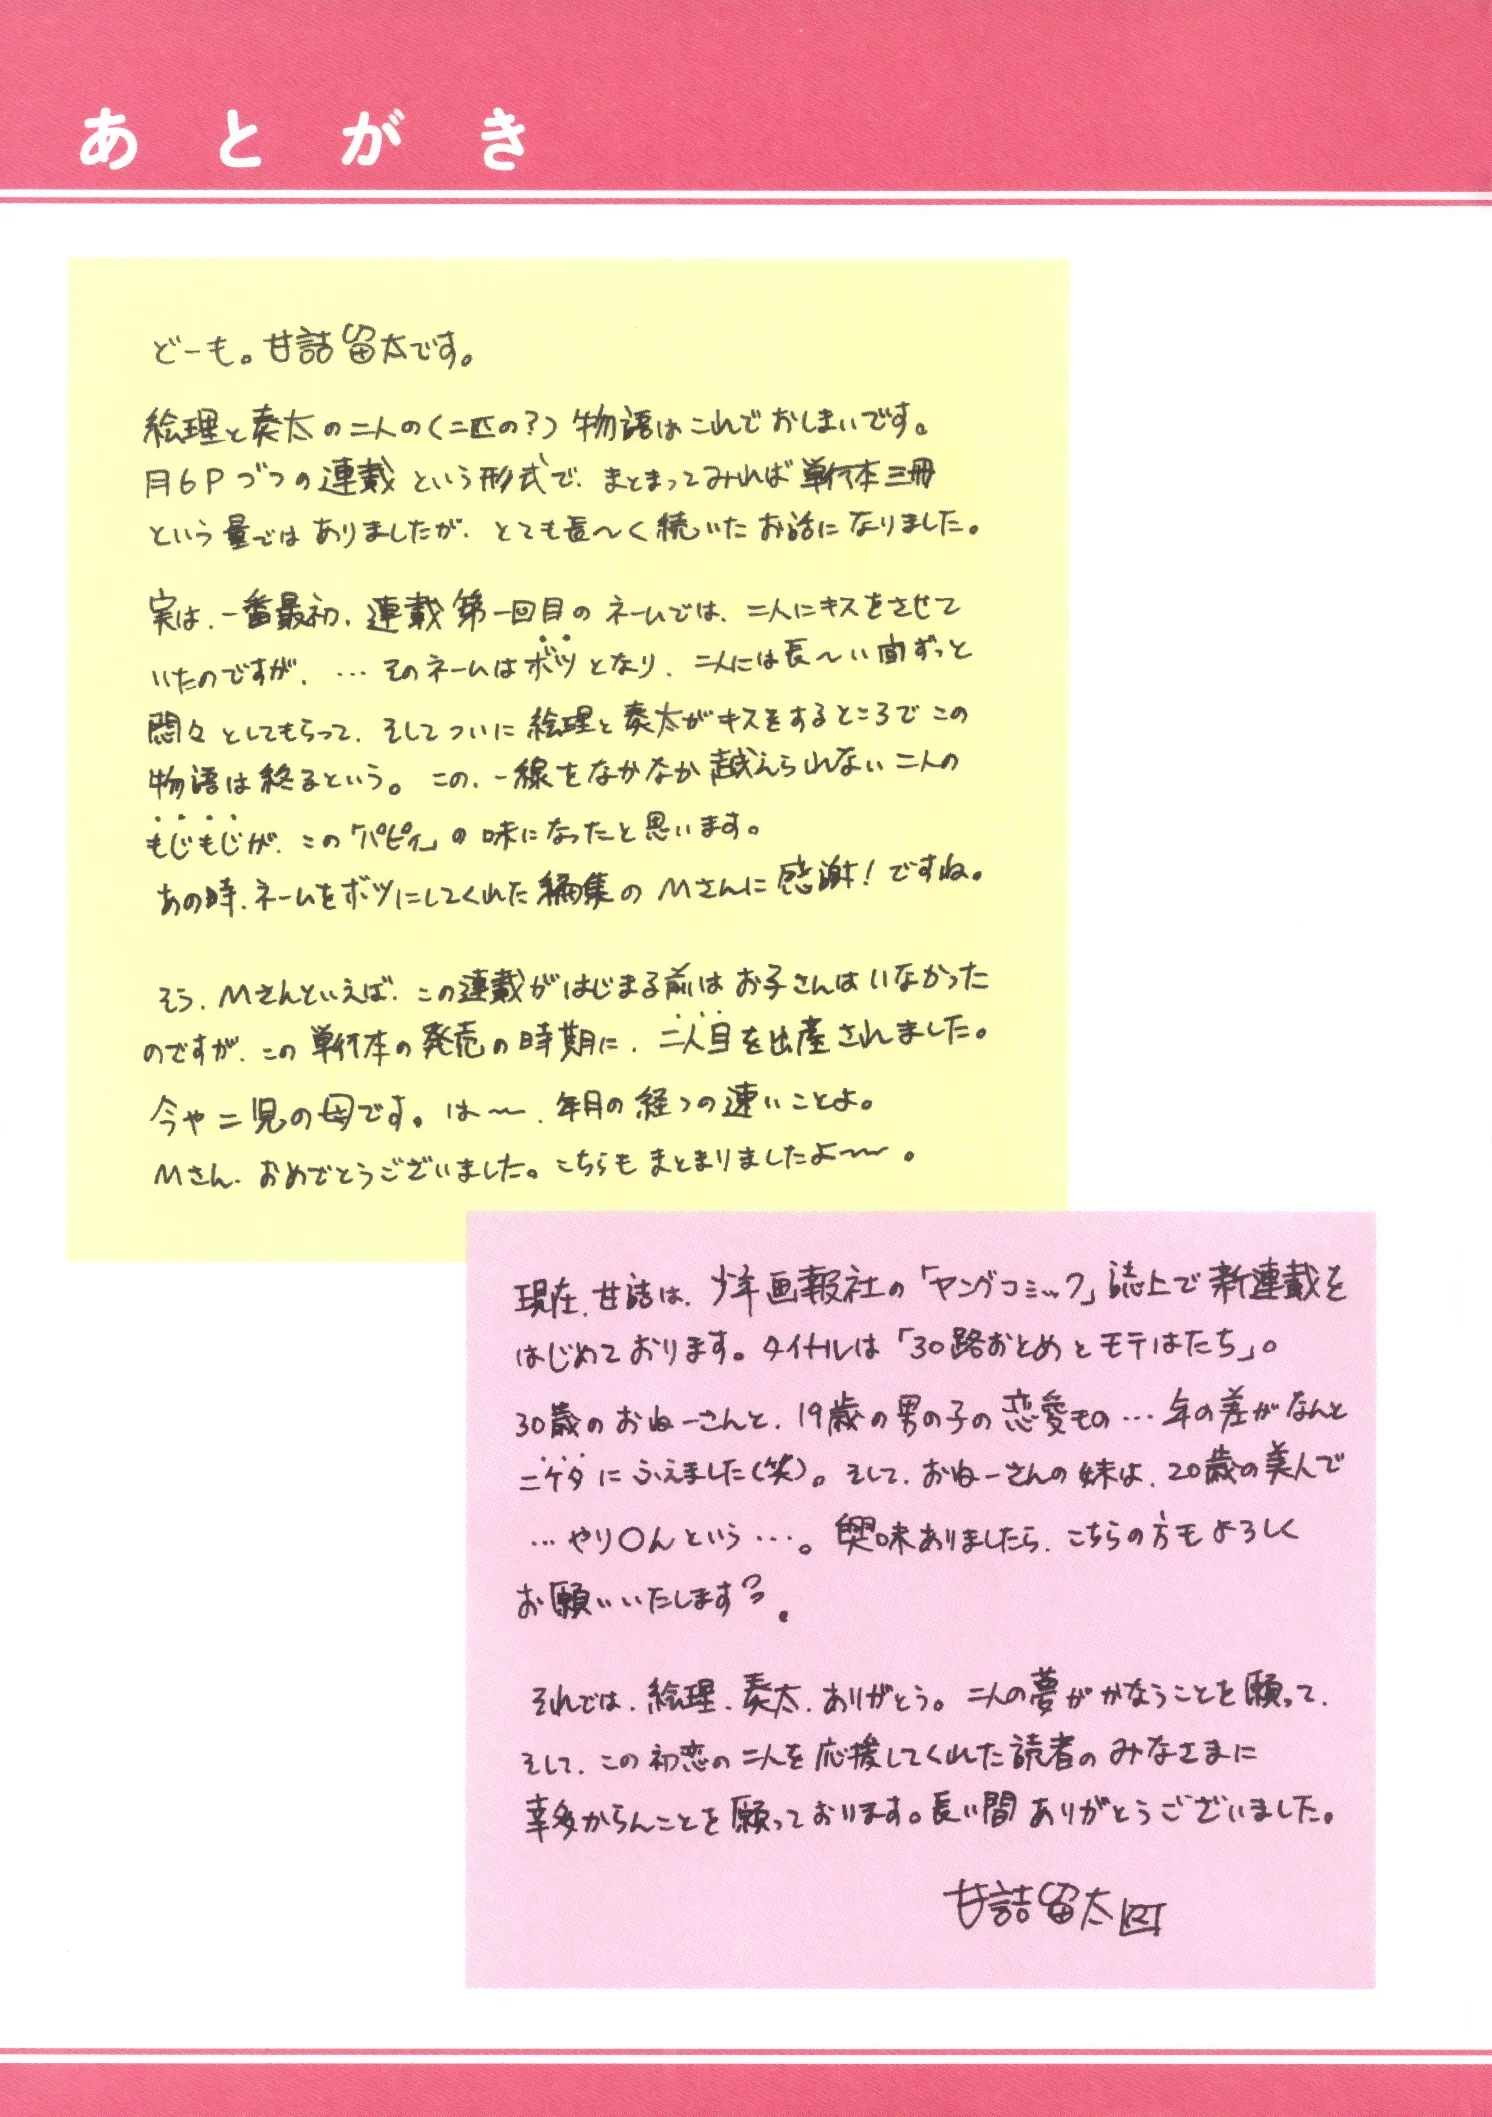 あとがき
どーも。甘詰留太です。
絵理と奏太の二人の(二匹の?)物語はこれでおしまいです。
月6Pづつの連載という形式で、まとまってみれば単行本三冊
という量ではありましたが、とても長〜く続いたお話になりました。
実は、一番最初、連載第一回目のネームでは、二人にキスをさせて
いたのですが、…そのネームはボツとなり、二人には長〜い間ずっと
悶々としてもらって、そしてついに絵理と奏太がキスをするところでこの
物語は終るという。この、一線をなかなか越えられない二人の
もじもじが、この「パピィ」の味になったと思います。
あの時、ネームをボツにしてくれた編集のMさんに感謝!ですね。
そう、Mさんといえば、この連載がはじまる前はお子さんはいなかった
のですが、この単行本の発売の時期に、二人目を出産されました。
今や二児の母です。は〜〜、年月の経つの速いことよ。
Mさん、おめでとうございました。こちらもまとまりましたよ〜〜。
現在、甘詰は、少年画報社の「ヤングコミック」誌上で新連載を
はじめております。タイトルは「30路おとめとモテはたち」。
30歳のおねーさんと、19歳の男の子の恋愛もの…年の差がなんと
ニケタにふえました(笑)。そして、おねーさんの妹は、20歳の美人で
…やり〇んという…。興味ありましたら、こちらの方もよろしく
お願いいたします。
それでは、絵理、奏太、ありがとう。二人の夢がかなうことを願って、
そして、この初恋の二人を応援してくれた読者のみなさまに
幸多からんことを願っております。長い間ありがとうございました。
甘詰留太